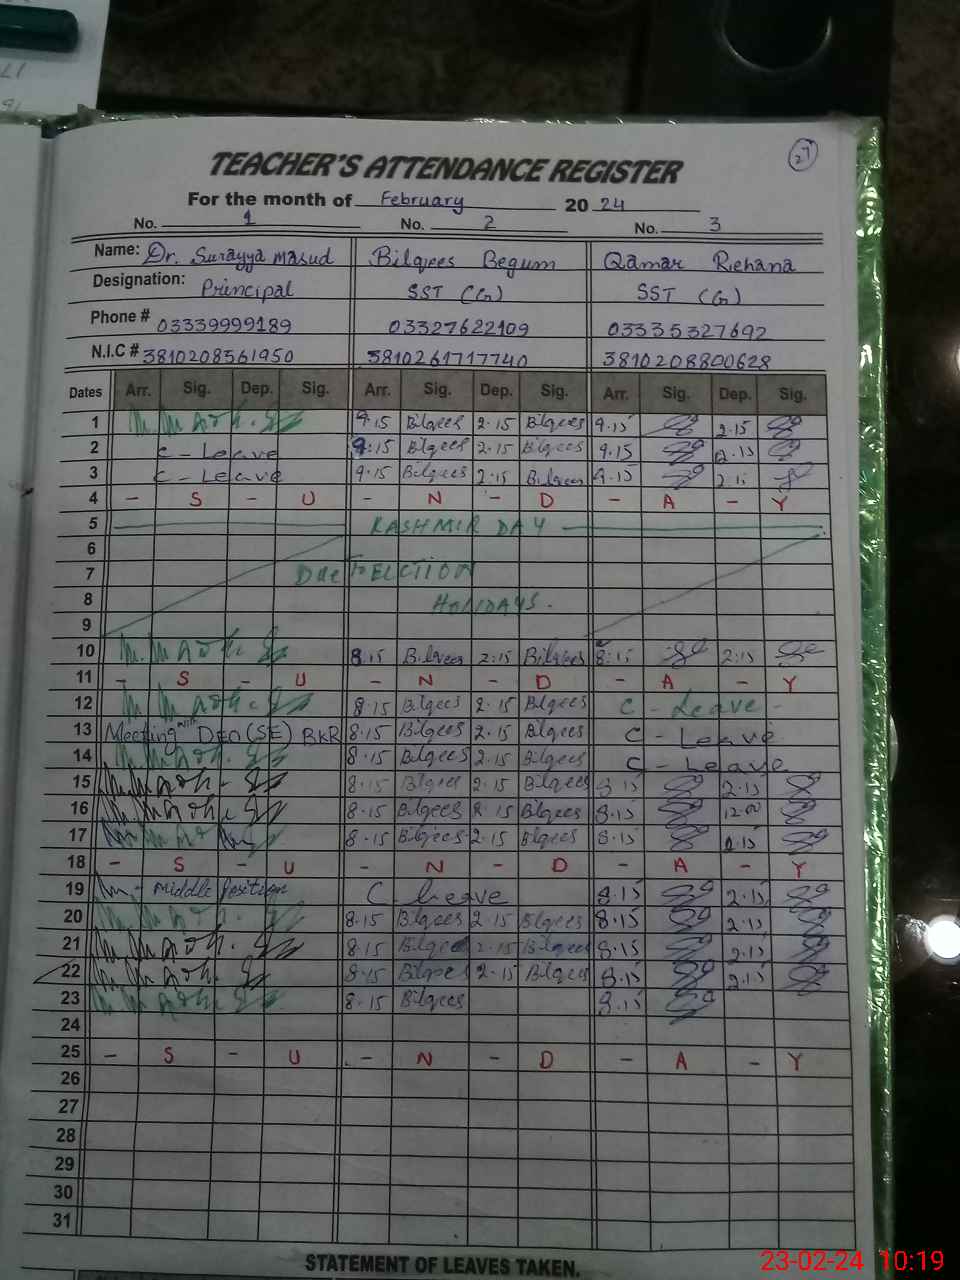 27
TEACHER'S ATTENDANCE REGISTER
For the month of February 20 24
No. 1 No. 2 No. 3
Name: Dr. Surayya Masud Bilqees Begum Qamar Riehana
Designation: Principal SST (G) SST (G)
Phone # 03339999189 03327622109 03335327692
N.I.C # 3810208561950 3810261717740 3810208800628
Dates Arr. Sig. Dep. Sig. Arr. Sig. Dep. Sig. Arr. Sig. Dep. Sig.
1 9.15 Bilqees 2.15 Bilqees 9.15 2.15
2 C - Leave 9:15 Bilqees 2.15 Bilqees 9.15 2.15
3 C - Leave 9.15 Bilqees 2:15 Bilqees 9.15 2.15
4 - S - U - N - D - A - Y
5 KASHMIR DAY
6
7 Due To ELCTION
8 HOLIDAYS.
9
10 8.15 Bilqees 2:15 Bilqees 8:15 2:15
11 - S - U - N - D - A - Y
12 8.15 Bilqees 2.15 Bilqees C - Leave -
13 Meeting with DEO (SE) BKR 8.15 Bilqees 2.15 Bilqees C - Leave
14 8.15 Bilqees 2.15 Bilqees C - Leave
15 8.15 Bilqees 2.15 Bilqees 8.15 2.15
16 8.15 Bilqees 2.15 Bilqees 8.15 12.00
17 8.15 Bilqees 2.15 Bilqees 8.15 2.15
18 - S - U - N - D - A - Y
19 - Middle Position C leave 8.15 2.15
20 8.15 Bilqees 2.15 Bilqees 8.15 2.15
21 8.15 Bilqees 2.15 Bilqees 8.15 2.15
22 8.15 Bilqees 2.15 Bilqees 8.15 2.15
23 8.15 Bilqees 8.15
24
25 - S - U - N - D - A - Y
26
27
28
29
30
31
STATEMENT OF LEAVES TAKEN.
23-02-24 10:19